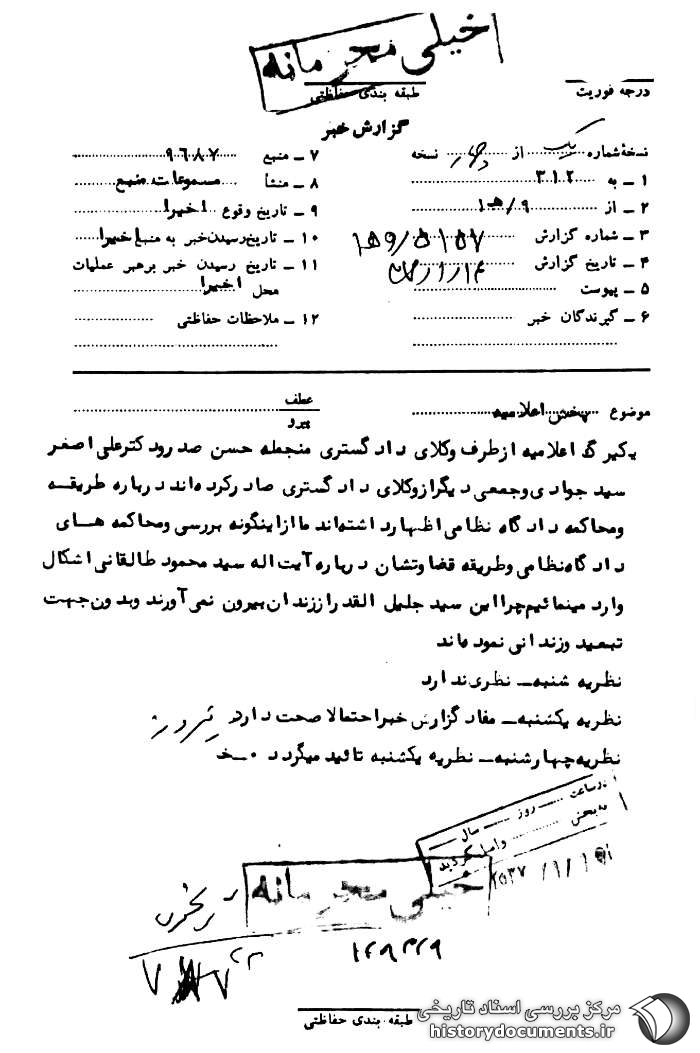 خیلی محرمانه
طبقه بندی حفاظتی
درجه فوریت
گزارش خبر
نسخهٔ شماره یک از چهار نسخه
۱ ــ به ۳۱۲
۲ ــ از ۹/هـ۱
۳ ــ شماره گزارش
۴ ــ تاریخ گزارش
۵ ــ پیوست
۶ ــ گیرندگان خبر
۷ ــ منبع ۹۶۸۷
۸ ــ منشأ مسموعات منبع
۹ ــ تاریخ وقوع اخیرا
۱۰ ــ تاریخ رسیدن خبر به منبع اخیرا
۱۱ ــ تاریخ رسیدن خبر برهبر عملیات
محل اخیرا
۱۲ ــ ملاحظات حفاظتی
موضوع پخش اعلامیه
عطف
پیرو
یکبرگ اعلامیه ازطرف وکلای دادگستری منجمله حسن صدرودکترعلی اصغر
سید جوادی وجمعی دیگرازوکلای دادگستری صادرکرده اند درباره طریقه
ومحاکمه دادگاه نظامی اظهارداشته اند ماازاینگونه بررسی ومحاکمه های
دادگاه نظامی وطریقه قضاوتشان درباره آیت اله سید محمود طالقانی اشکال
وارد مینمائیم چرا این سید جلیل القدرراززندان بیرون نمی آورند وبدون جهت
تبعید وزندانی نموده اند
نظریه شنبه ــ نظری ندارد
نظریه یکشنبه ــ مفاد گزارش خبراحتمالا صحت دارد
نظریه چهارشنبه ــ نظریه یکشنبه تائید میگردد ۰ ــ خ
درساعت روز سال
به بخش واصل گردید
خیلی محرمانه
۱۴۹۳۲۹
طبقه بندی حفاظتی
مرکز بررسی اسناد تاریخی
historydocuments.ir